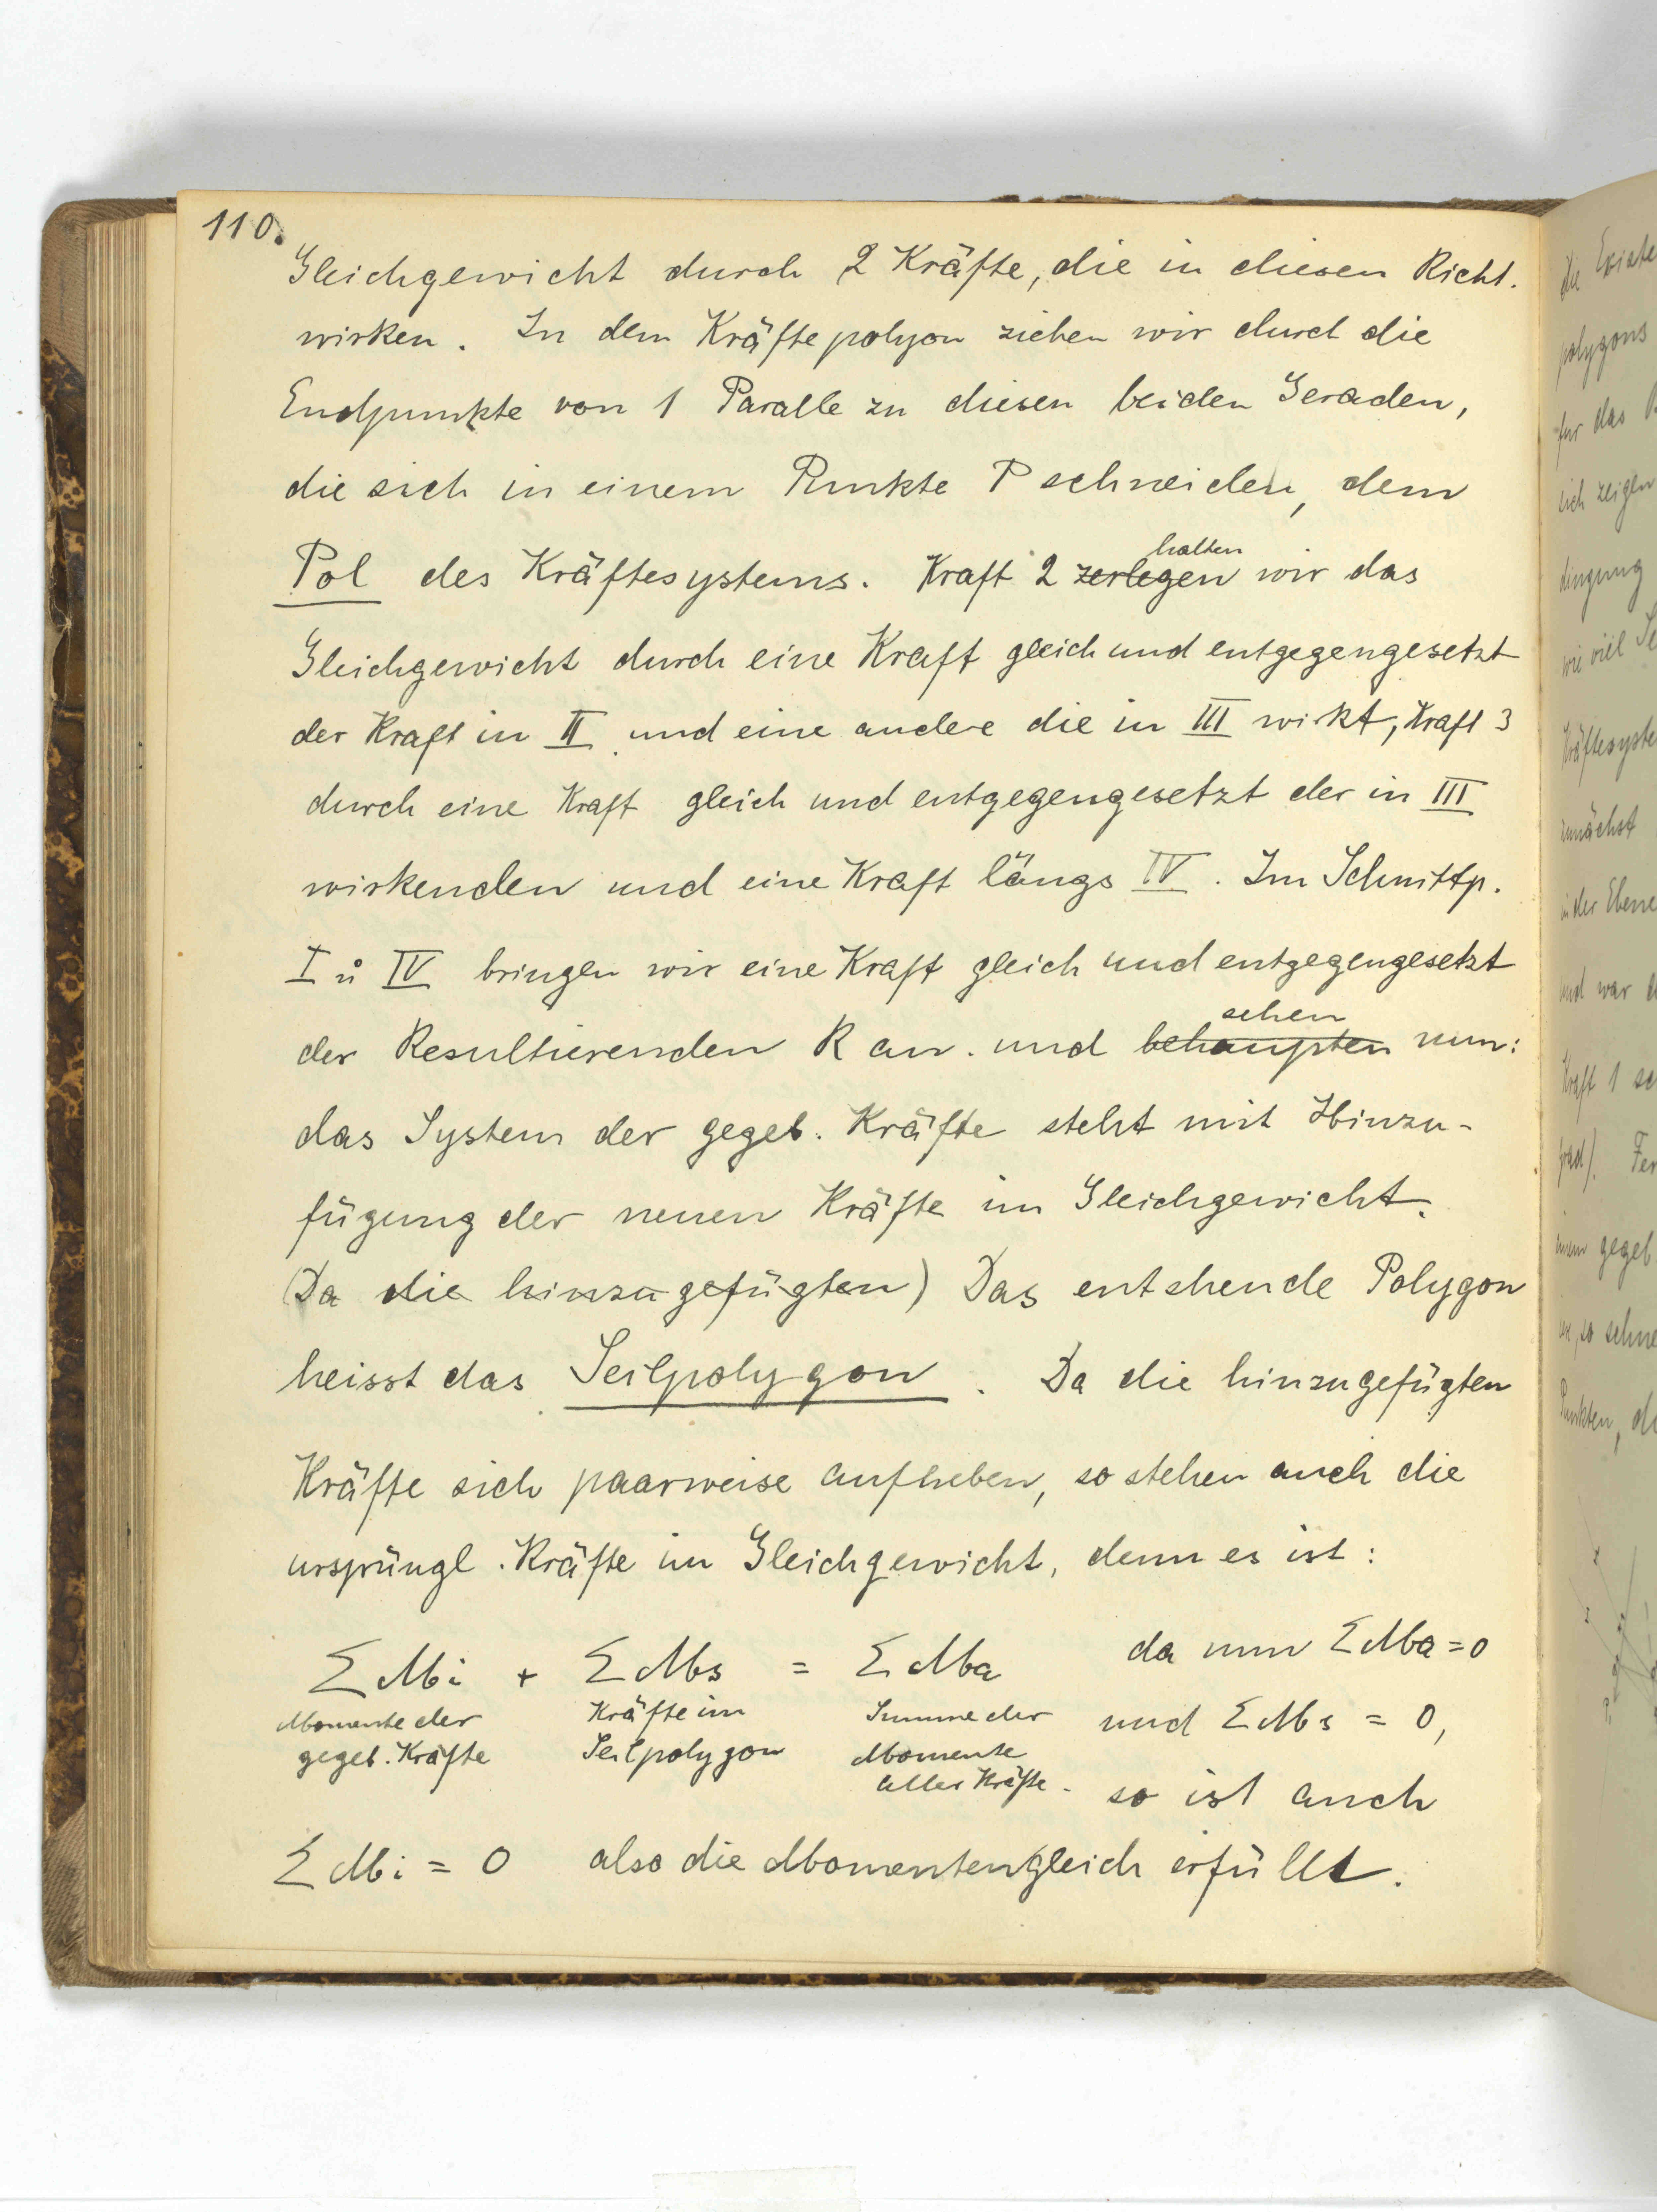 110.
Gleichgewicht durch 2 Kräfte, die in diesen Richt.
wirken. In dem Kräftepolyon ziehen wir durch die
Endpunkte von 1 Paralle zu diesen beiden Geraden,
die sich in einem Punkte P schneiden, dem
halten
Pol des Kräftesystems. Kraft 2 zerlegen wir das
Gleichgewicht durch eine Kraft gleich und entgegengesetzt
der Kraft in II und eine andere die in III wirkt, Kraft 3
durch eine Kraft gleich und entgegengesetzt der in III
wirkenden und eine Kraft längs IV. Im Schnittp.
I u IV bringen wir eine Kraft gleich und entgegengesetzt
sehen
der Resultierenden R an. und behaupten nun:
das System der gegeb. Kräfte steht mit Hinzu-
fügung der neuen Kräfte im Gleichgewicht.
(Da die hinzugefügten) Das entshende Polygon
heisst das Seilpolygon. Da die hinzugefügten
Kräfte sich paarweise aufheben, so stehen auch die
ursprüngl. Kräfte im Gleichgewicht, denn es ist:
Σ Mi + Σ Ms = Σ Ma da nun Σ Ma = 0
Momente der Kräfte im Summe der und Σ Ms = 0,
gegeb. Kräfte Seilpolygon Momente
aller Kräfte. so ist auch
Σ Mi = 0 also die Momentengleich erfüllt.
die Existe
polygons
für das
sich zeigen
dingung
wie viel Se
Kräftesyste
zunächst
in der Ebene
und war
Kraft 1 sc
Fer
gegeb
so schne
Punkten, di